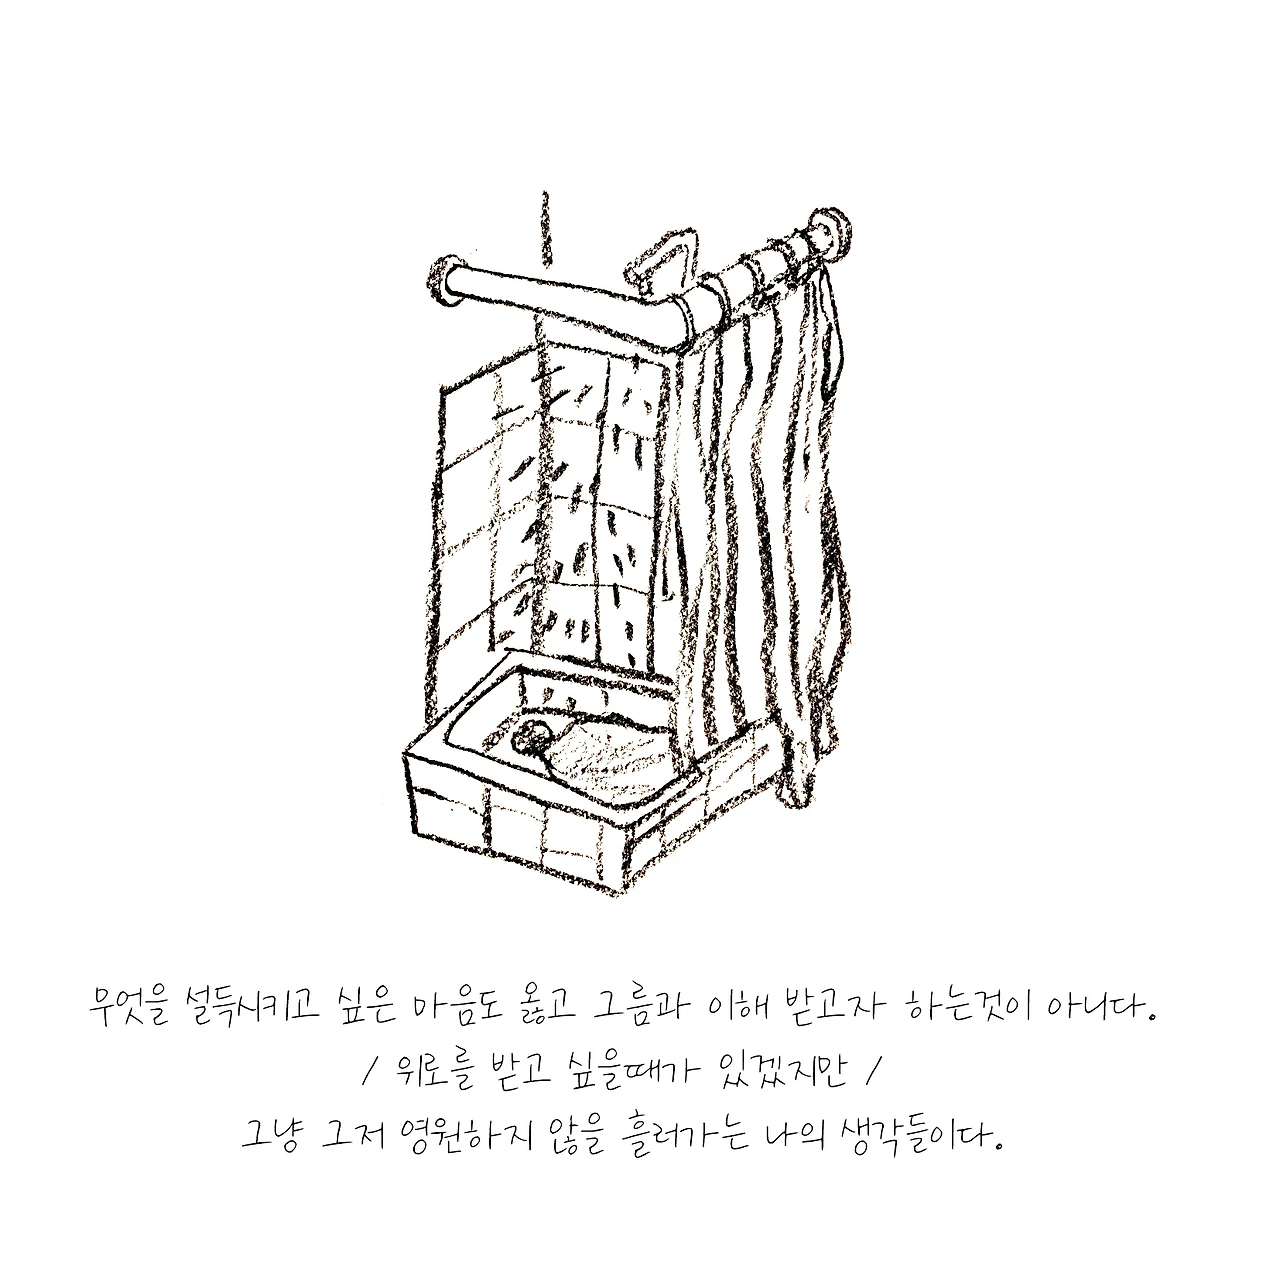 무엇을 설득시키고 싶은 마음도 옳고 그름과 이해 받고자 하는것이 아니다.
/ 위로를 받고 싶을때가 있겠지만 /
그냥 그저 영원하지 않을 흘러가는 나의 생각들이다.